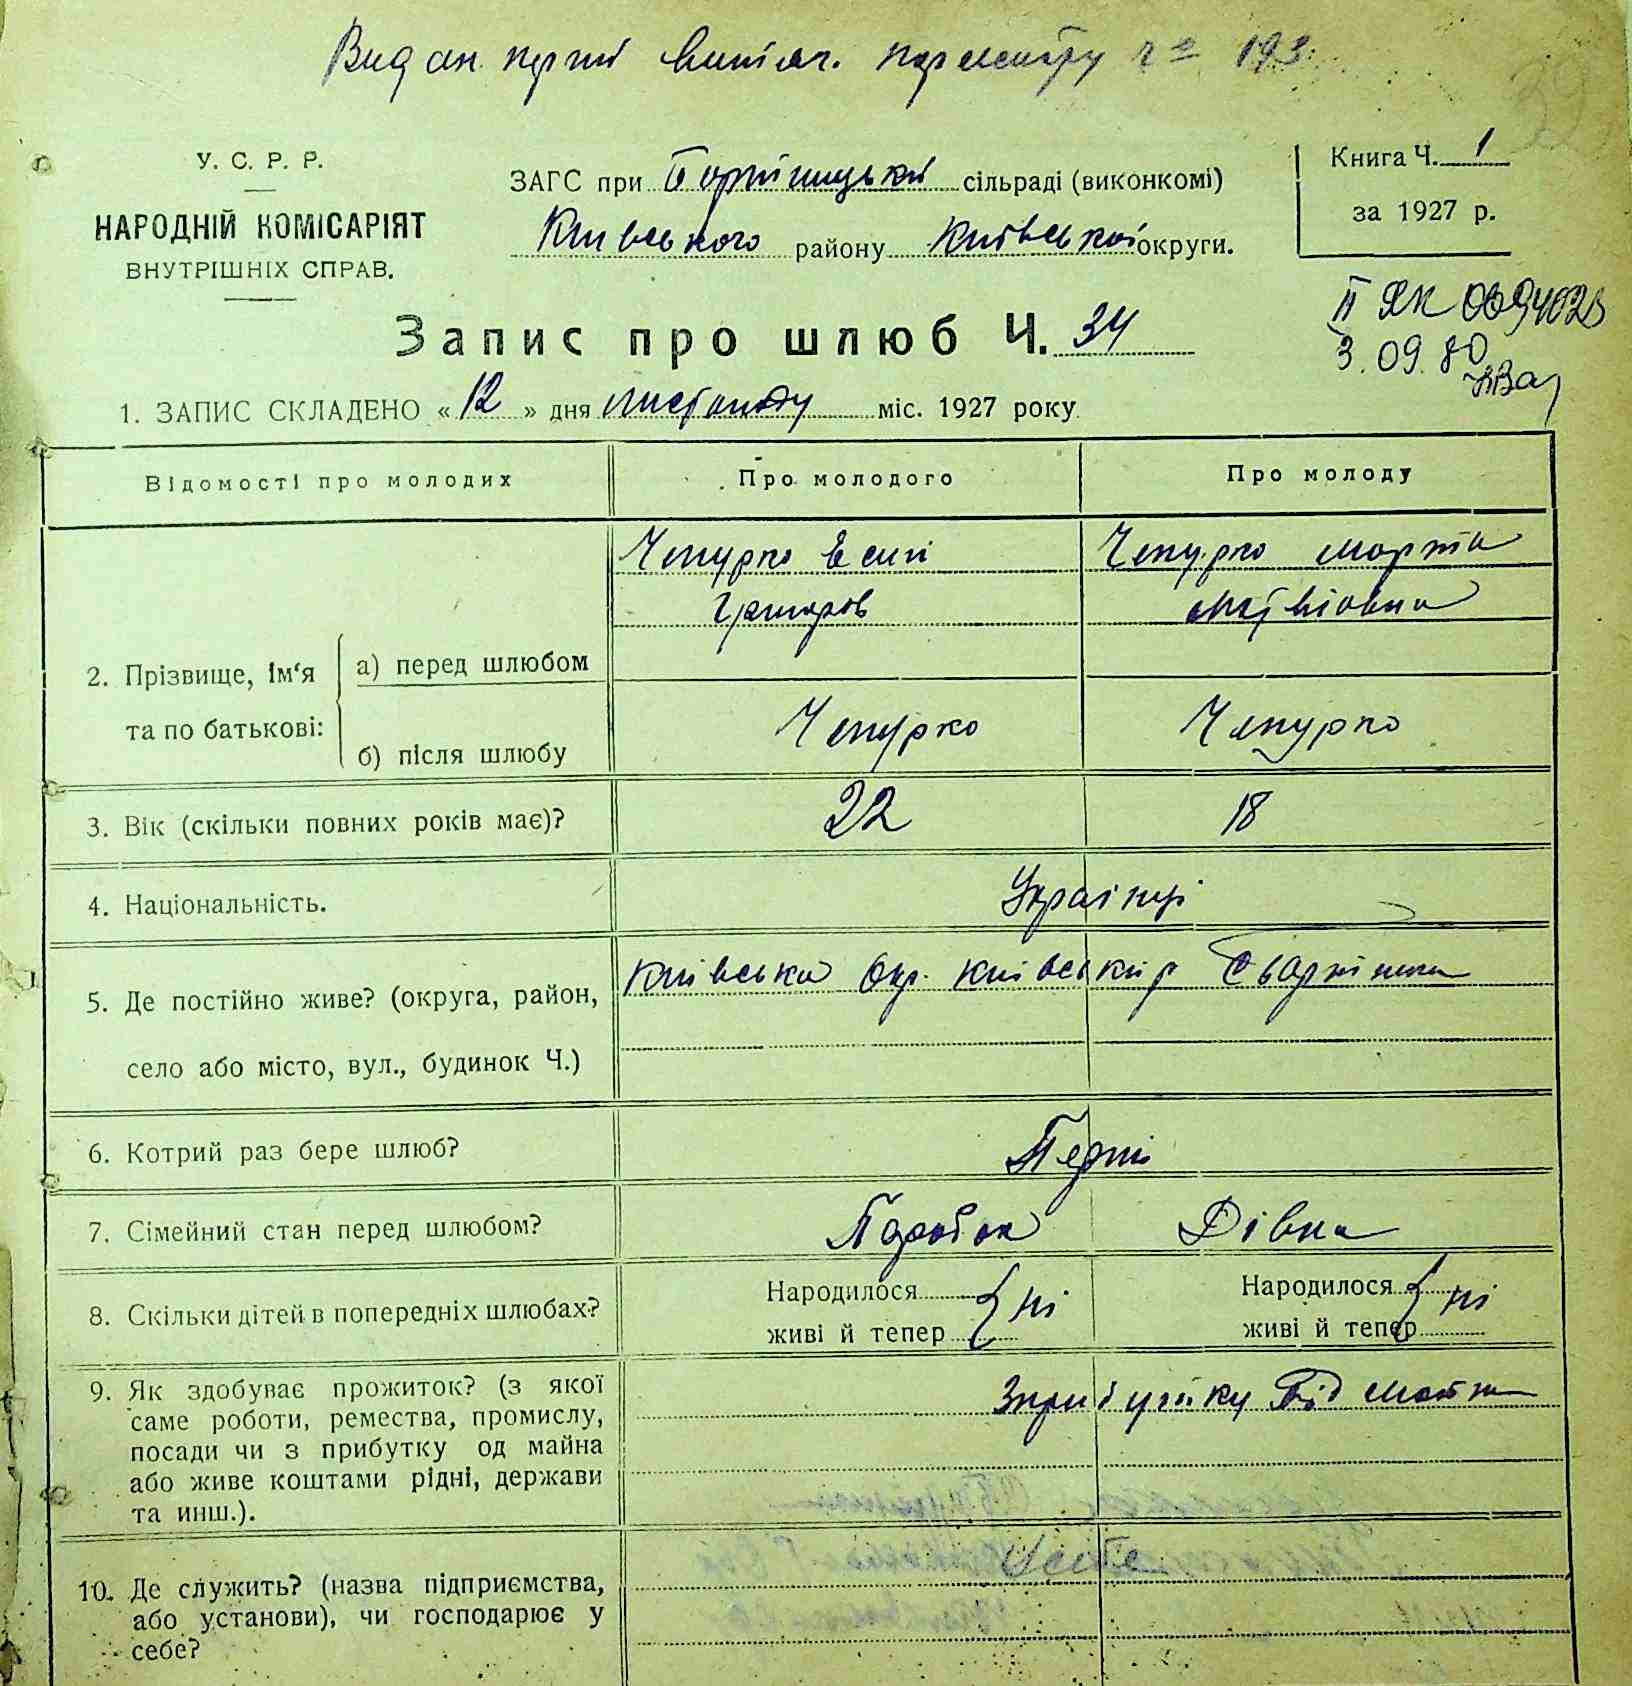 Видан
У. С. Р. Р.
НАРОДНІЙ КОМІСАРІЯТ
ВНУТРІШНІХ СПРАВ.
ЗАГС при Бортницькій сільраді (виконкомі)
Київського району Київської округи.
Книга Ч. 1
за 1927 р.
3.09.80
Запис про шлюб Ч. 34
1. ЗАПИС СКЛАДЕНО «12» дня листопаду міс. 1927 року
Відомості про молодих
Про молодого
Про молоду
2. Прізвище, ім'я
та по батькові:
а) перед шлюбом
б) після шлюбу
Чепурко
Григоров
Чепурко Марта
Матвіовна
Чепурко
Чепурко
3. Вік (скільки повних років має)?
22
18
4. Національність.
Українці
5. Де постійно живе? (округа, район,
село або місто, вул., будинок Ч.)
Київська Окр. Київський р с Бортничи
6. Котрий раз бере шлюб?
Перший
7. Сімейний стан перед шлюбом?
Паробок
Дівка
8. Скільки дітей в попередніх шлюбах?
Народилося
живі й тепер
ні
Народилося
живі й тепер
ні
9. Як здобуває прожиток? (з якої
саме роботи, ремества, промислу,
посади чи з прибутку од майна
або живе коштами рідні, держави
та инш.).
10. Де служить? (назва підприємства,
або установи), чи господарює у
себе?
У себе